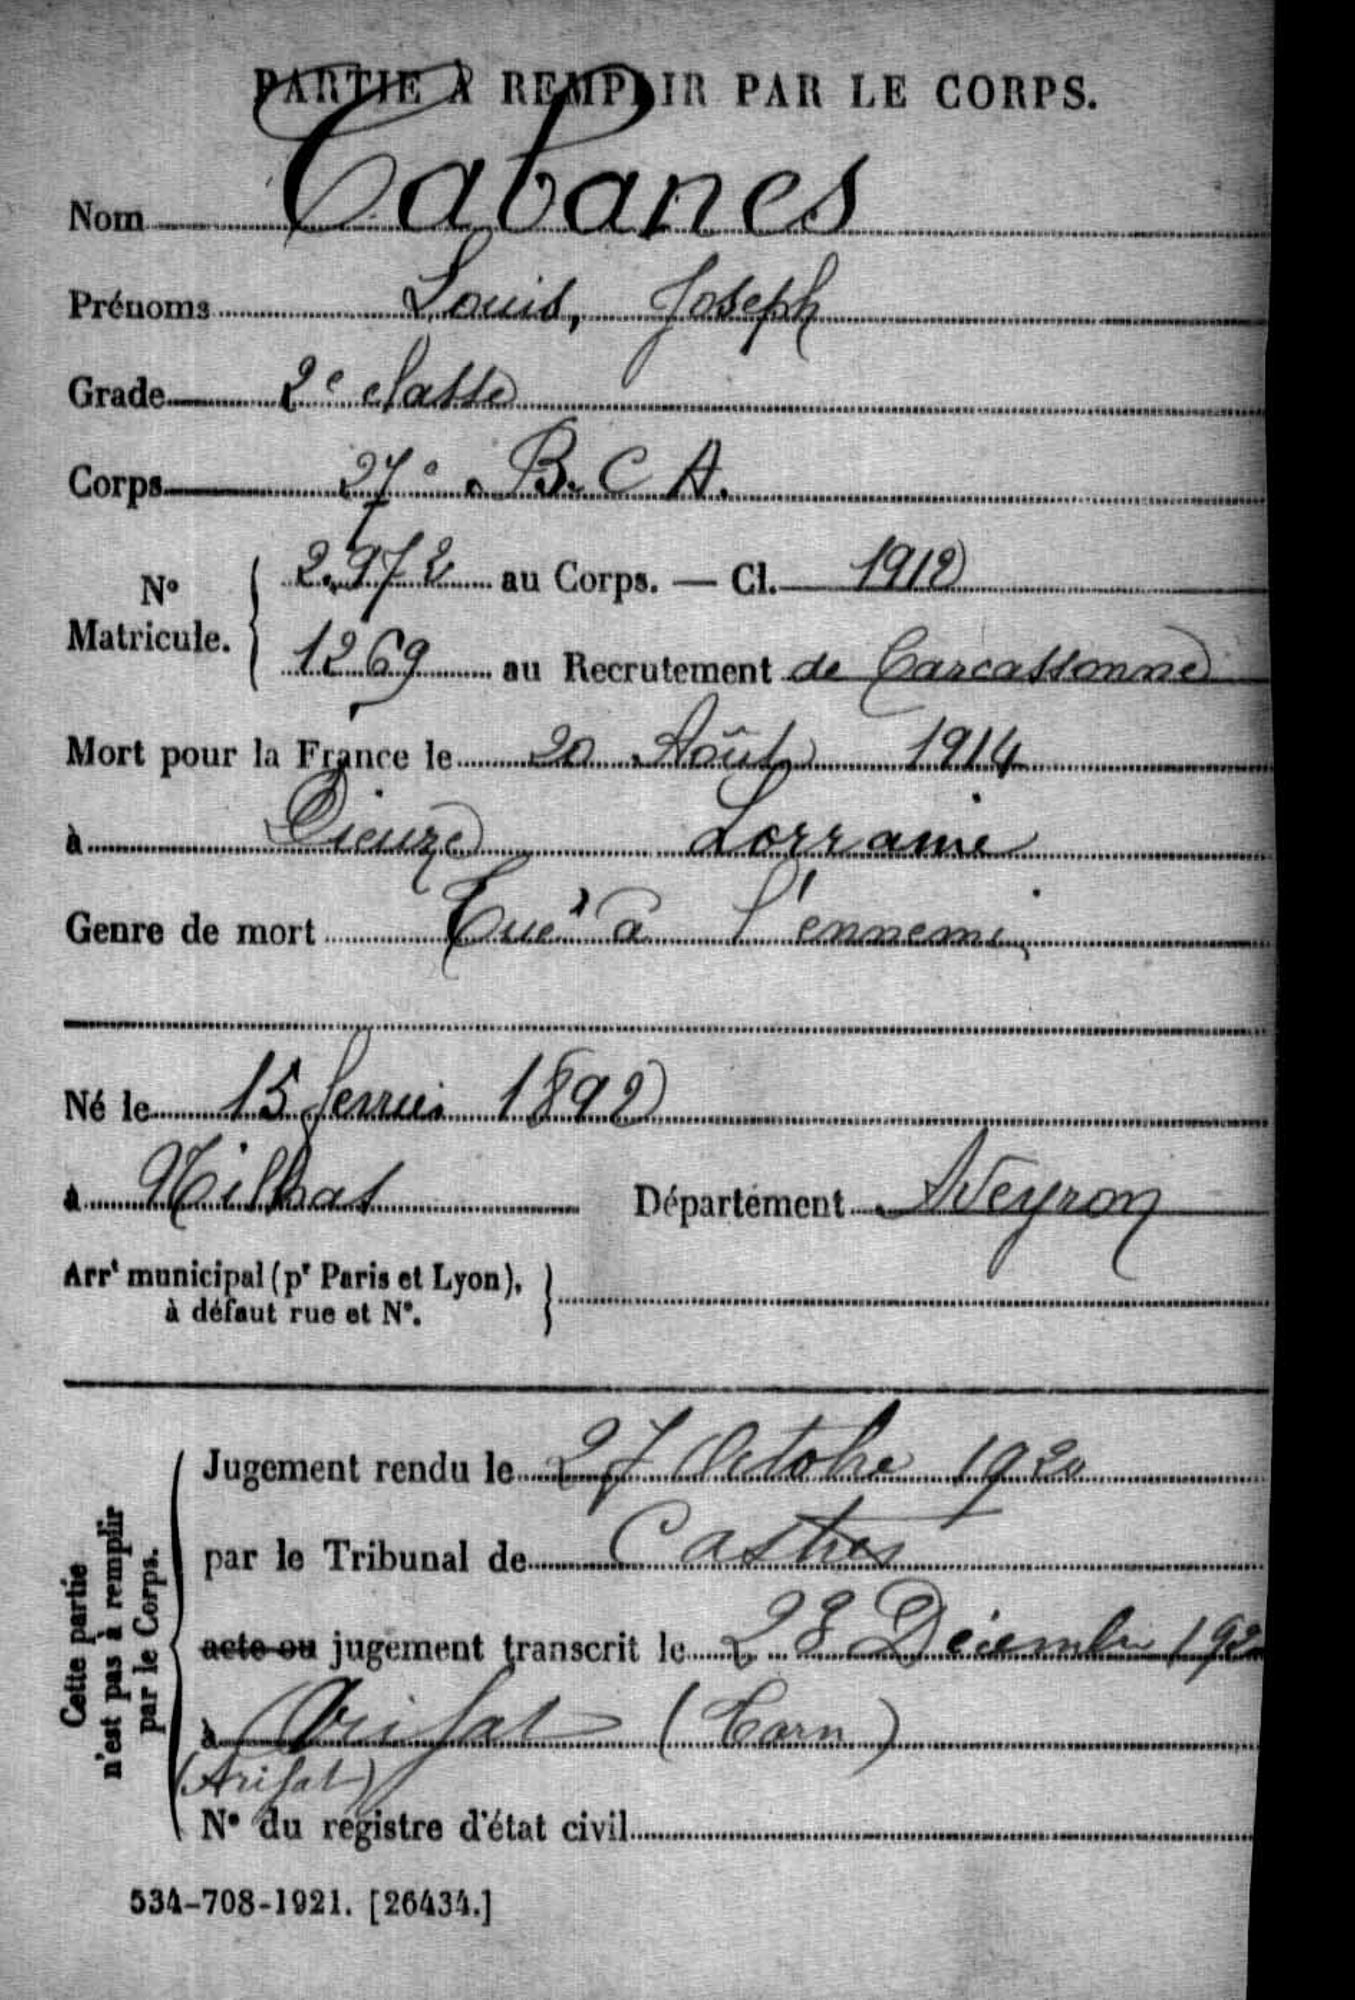 PARTIE À REMPLIR PAR LE CORPS.
Nom Cabanes
Prénoms Louis, Joseph
Grade 2e classe
Corps 27e B. C A.
No Matricule. { 2.972 au Corps. — Cl. 1912
1269 au Recrutement de Carcassonne
Mort pour la France le 20 Août 1914
à Dieuze Lorraine
Genre de mort Tué à l'ennemi
Né le 15 ferrier 1892
à Milhas Département Aveyron
Arrt municipal (pr Paris et Lyon), à défaut rue et No. }
Cette partie n'est pas à remplir par le Corps.
Jugement rendu le 27 Octobre 1920
par le Tribunal de Castres
acte ou jugement transcrit le 28 Décembre 192
à Arifat (Tarn)
(Arifat)
No du registre d'état civil
534-708-1921. [26434.]